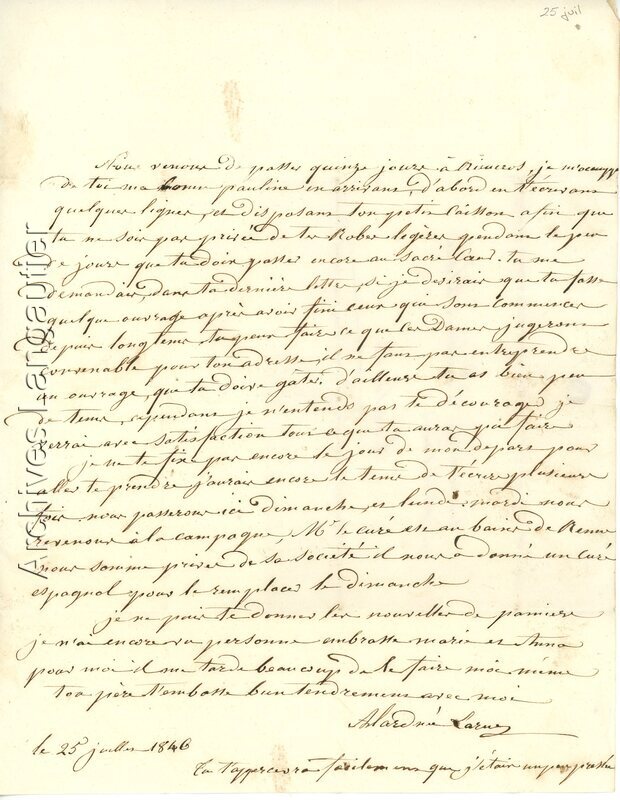 25 juil
Nous venons de passer quinze jours à je m'occuppe
de toi ma bonne pauline en arrivant, d'abord en t'écrivant
quelques lignes, et disposant ton petit caisson afin que
tu ne sois pas privée de tes Robes légères pendant le peu
de jours que tu dois passer encore au sacré Cœur. tu me
demandais, dans ta dernière lettre, si je desirais que tu fasse
quelque ouvrage après avoir fini ceux qui sont commencés
depuis longtems, tu peux faire ce que ces Dames jugeront
convenable pour ton adresse, il ne faut pas entreprendre
un ouvrage, que tu doive gâter. d'ailleurs tu as bien peu
de tems, cependant je n'entends pas te décourager je
verrai avec satisfaction tout ce que tu auras pu faire
je ne te fixe pas encore le jour de mon depart pour
aller te prendre j'aurais encore le tems de t'écrire plusieurs
fois nous passerons ici dimanche, et lundi, mardi nous
revenons à la campagne, Mr le curé est au bains de Renne
nous somme privés de sa société il nous a donné un curé
espagnol pour le remplacer le dimanche
je ne puis te donner les nouvelles de pamiers
je n'ai encore vu personne embrasse marie et Anna
pour moi il me tarde beaucoup de le faire moi même
ton père t'embrasse bien tendrement avec moi
le 25 juillet 1846
tu t'appercevra facilement que j'étais un peu pressée
Archives Langautier